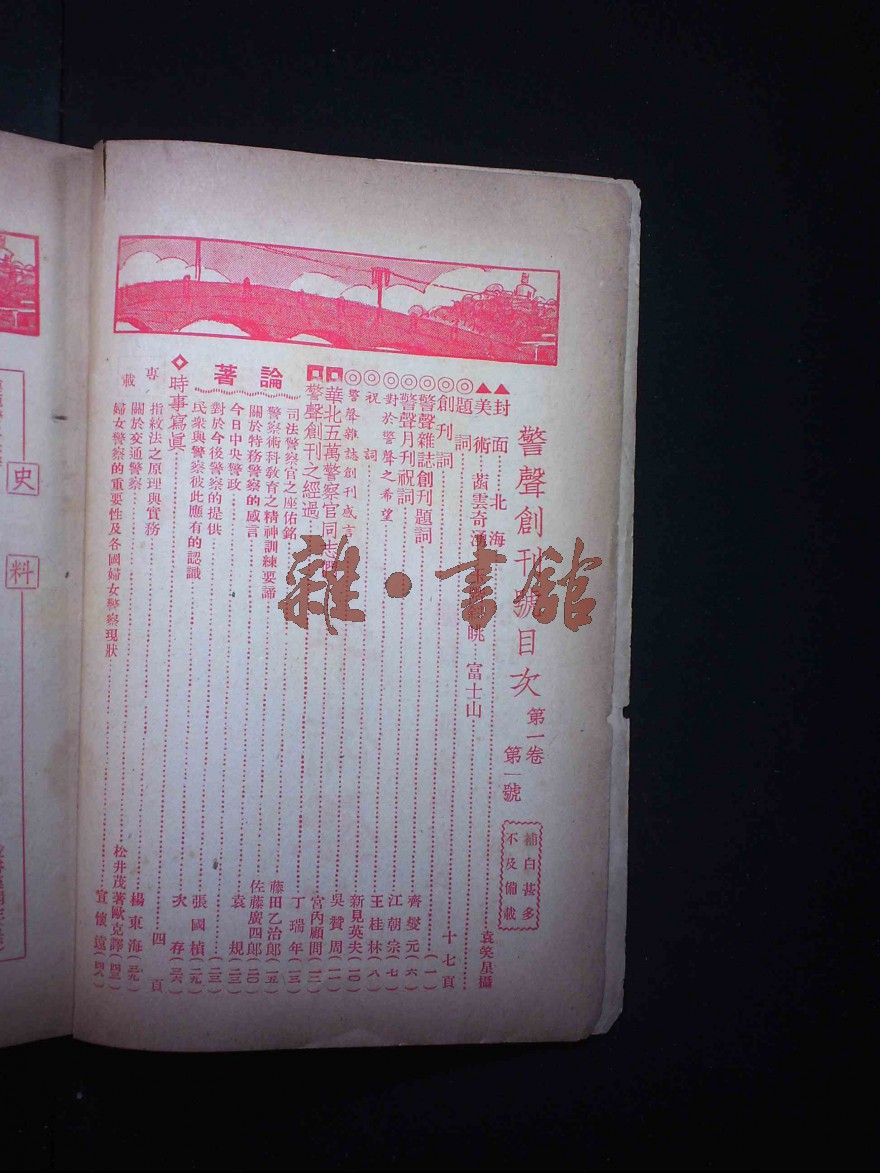 警聲創刊號目次
第一卷
第一號
補白甚多
不及備載
封面 北海 袁笑星攝
美術 富士山
題詞 十七頁
創刊詞 (一)
警聲雜誌創刊題詞 齊燮元 (六)
警聲月刊祝詞 江朝宗 (七)
對於警聲之希望 王桂林 (八)
祝詞 新見英夫 (一〇)
警聲雜誌創刊感言 吳贊周 (一一)
華北五萬警察官同志 宮內顧問 (一二)
警聲創刊之經過 丁瑞年 (一三)
論著
司法警察官之座佑銘
警察術科敎育之精神訓練要諦 藤田乙治郎 (一五)
關於特務警察的感言 佐藤廣四郎 (二〇)
今日中央警政 袁規 (二三)
對於今後警察的提供 (二三)
民衆與警察彼此應有的認識 張國楨 (二九)
時事寫眞 四頁
專載
指紋法之原理與實務
關於交通警察 楊東海
婦女警察的重要性及各國婦女警察現狀 宣懷遠
松井茂著歐克譯
次存
史料
雜·書館